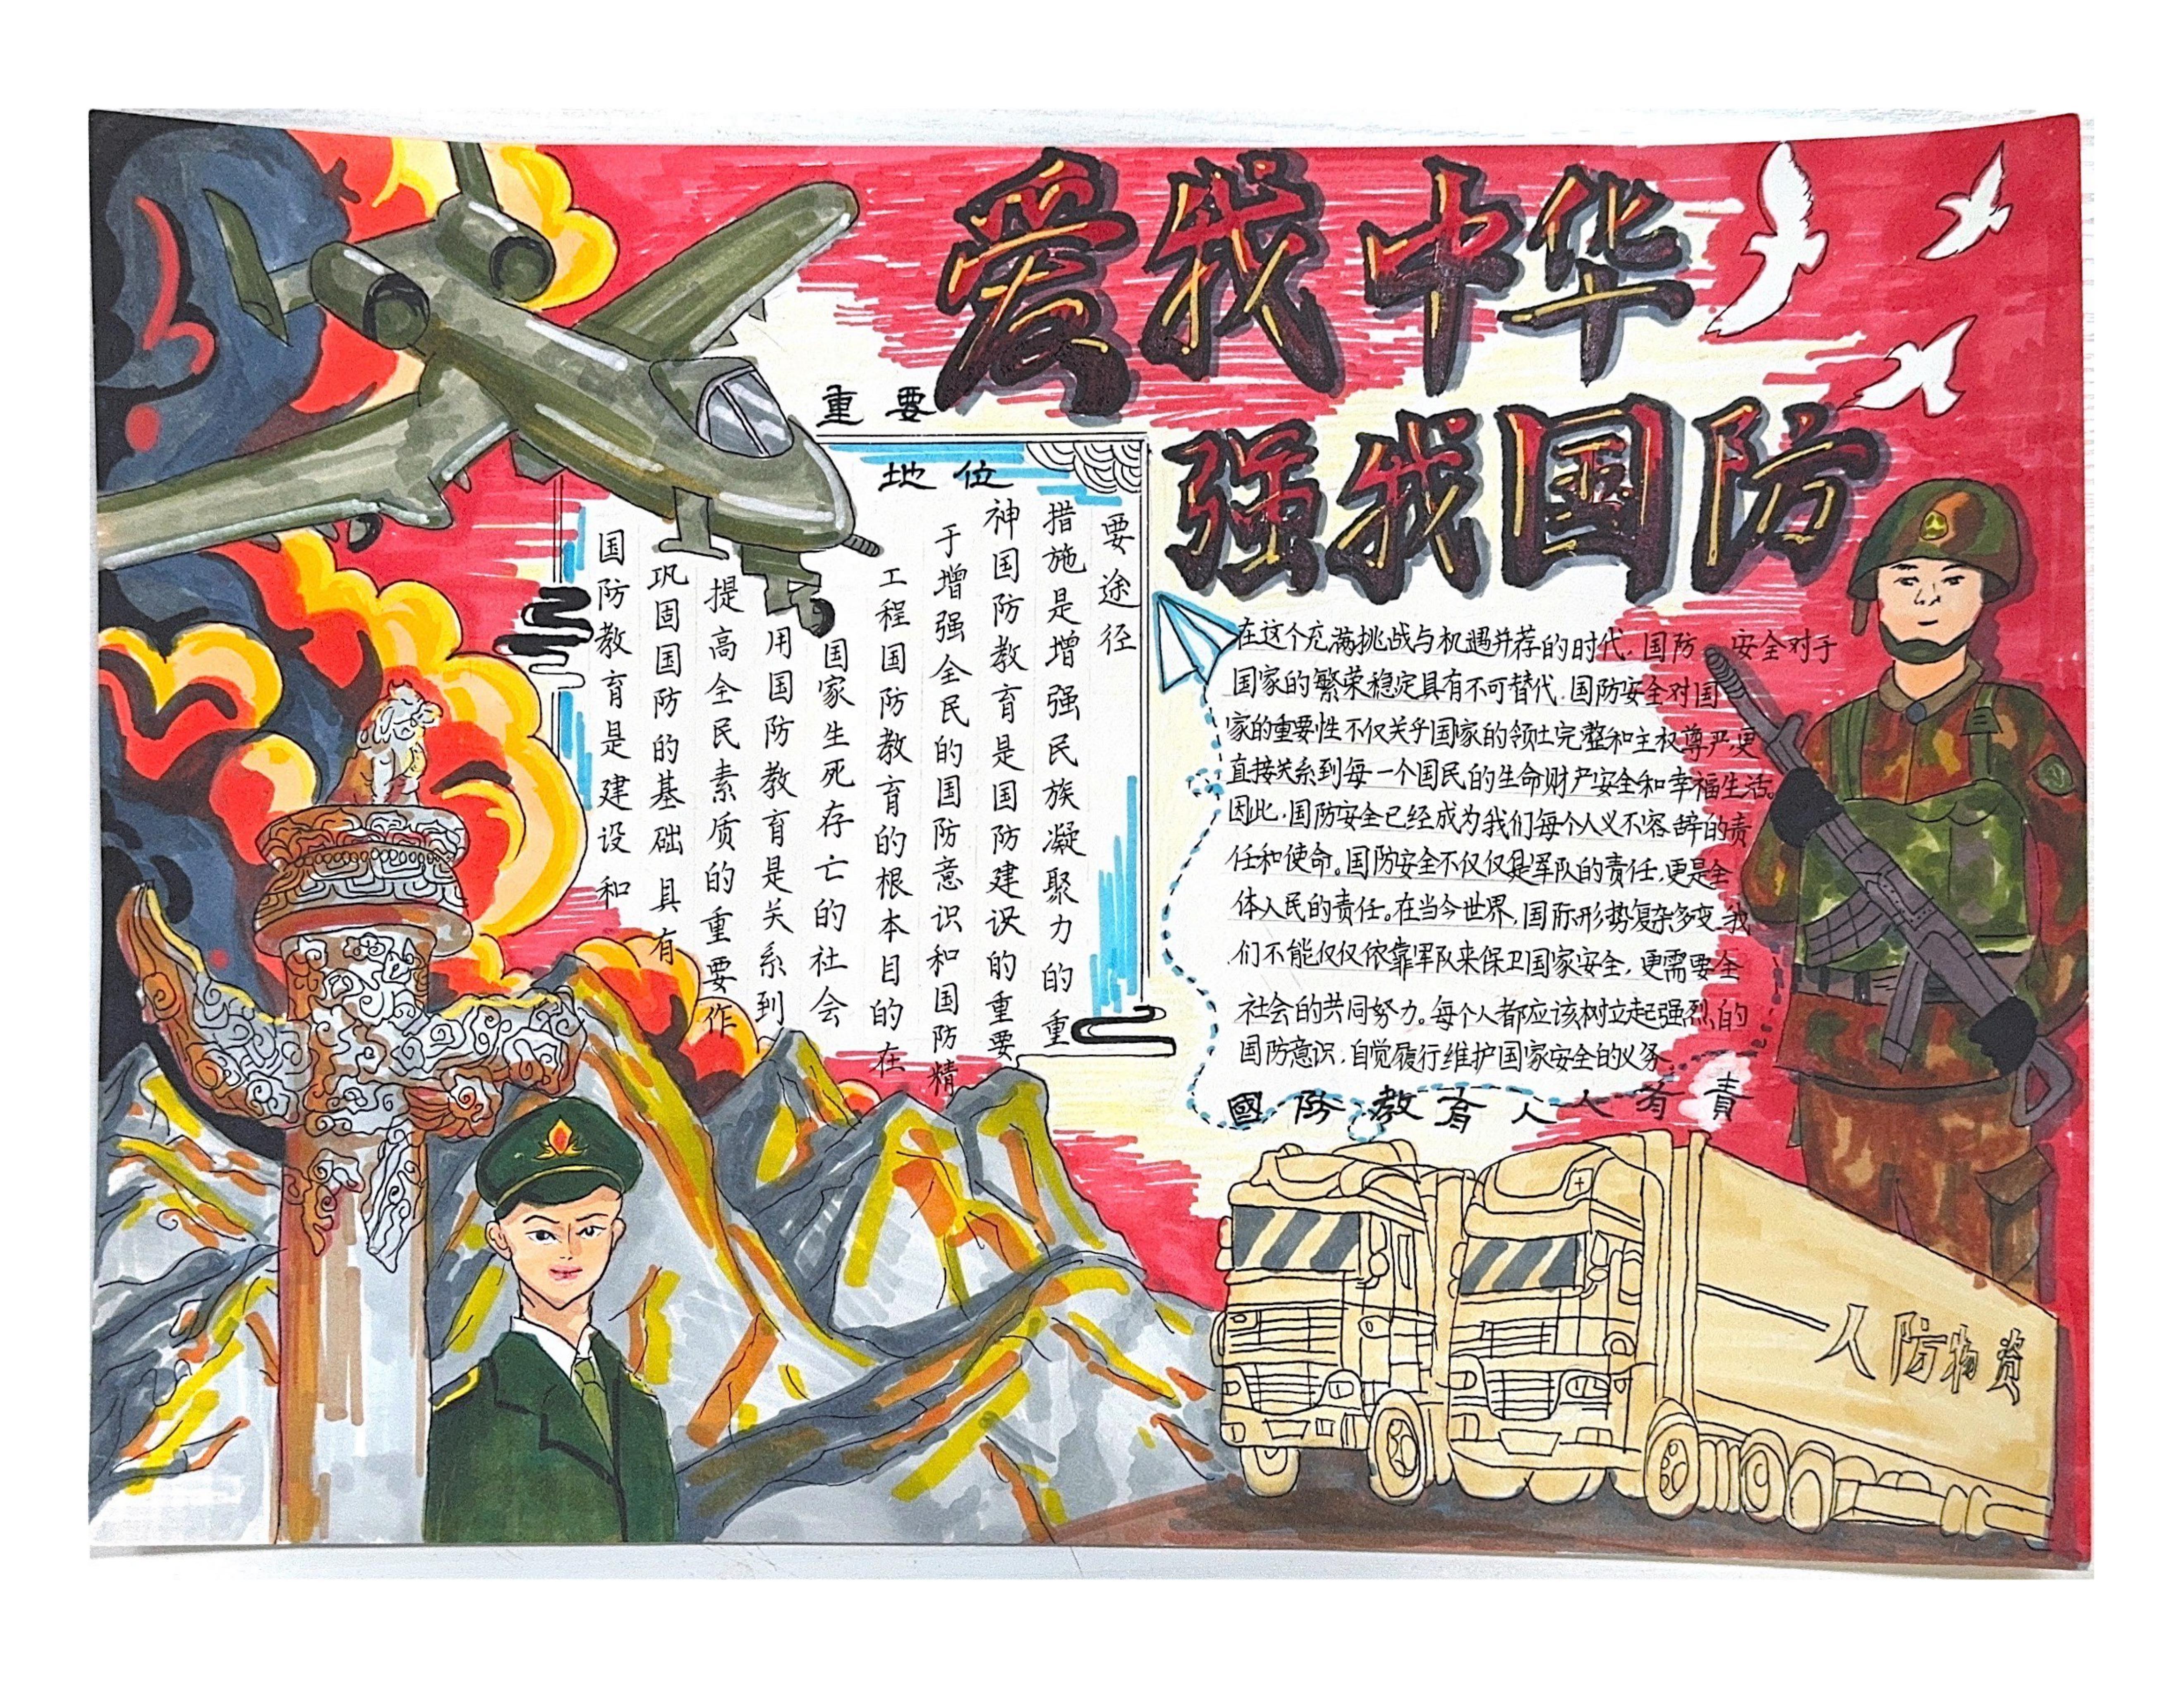 爱我中华
强我国防
重要
地位
国防教育是建设和
巩固国防的基础具有
提高全民素质的重要作
用国防教育是关系到
国家生死存亡的社会
工程国防教育的根本目的在
于增强全民的国防意识和国防精
神国防教育是国防建设的重要
措施是增强民族凝聚力的重
要途径
在这个充满挑战与机遇并存的时代,国防安全对于
国家的繁荣稳定具有不可替代,国防安全对国
家的重要性不仅关乎国家的领土完整和主权尊严,更
直接关系到每一个国民的生命财产安全和幸福生活。
因此,国防安全已经成为我们每个人义不容辞的责
任和使命。国防安全不仅仅是军队的责任,更是全
体人民的责任。在当今世界,国际形势复杂多变,我
们不能仅仅依靠军队来保卫国家安全,更需要全
社会的共同努力。每个人都应该树立起强烈的
国防意识,自觉履行维护国家安全的义务
國防教育人人有責
人防物资